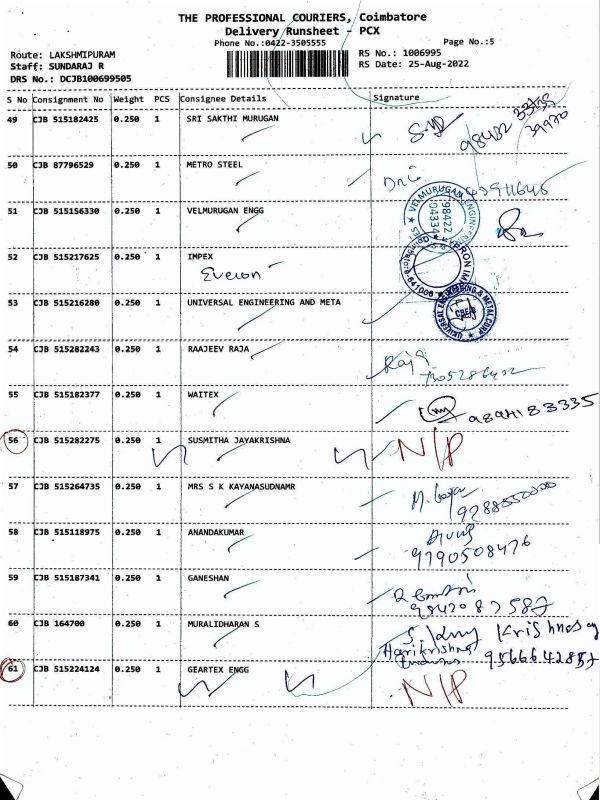 THE PROFESSIONAL COURIERS, Coimbatore
Delivery Runsheet - PCX
Phone No.:0422-3505555 Page No.:5
Route: LAKSHMIPURAM RS No.: 1006995
Staff: SUNDARAJ R RS Date: 25-Aug-2022
DRS No.: DCJB100699505
S No Consignment No Weight PCS Consignee Details Signature
49 CJB 515182425 0.250 1 SRI SAKTHI MURUGAN
50 CJB 87796529 0.250 1 METRO STEEL
51 CJB 515156330 0.250 1 VELMURUGAN ENGG
VELMURUGAN ENGINEERS
98422
04334
52 CJB 515217625 0.250 1 IMPEX
53 CJB 515216280 0.250 1 UNIVERSAL ENGINEERING AND META
UNIVERSAL ENGINEERING & METAL CORP
54 CJB 515282243 0.250 1 RAAJEEV RAJA
Raja
55 CJB 515182377 0.250 1 WAITEX
9894183335
56 CJB 515282275 0.250 1 SUSMITHA JAYAKRISHNA N/P
57 CJB 515264735 0.250 1 MRS S K KAYANASUDNAMR
58 CJB 515118975 0.250 1 ANANDAKUMAR
9790508476
59 CJB 515187341 0.250 1 GANESHAN
60 CJB 164700 0.250 1 MURALIDHARAN S
Harikrishna
9566642857
61 CJB 515224124 0.250 1 GEARTEX ENGG N/P